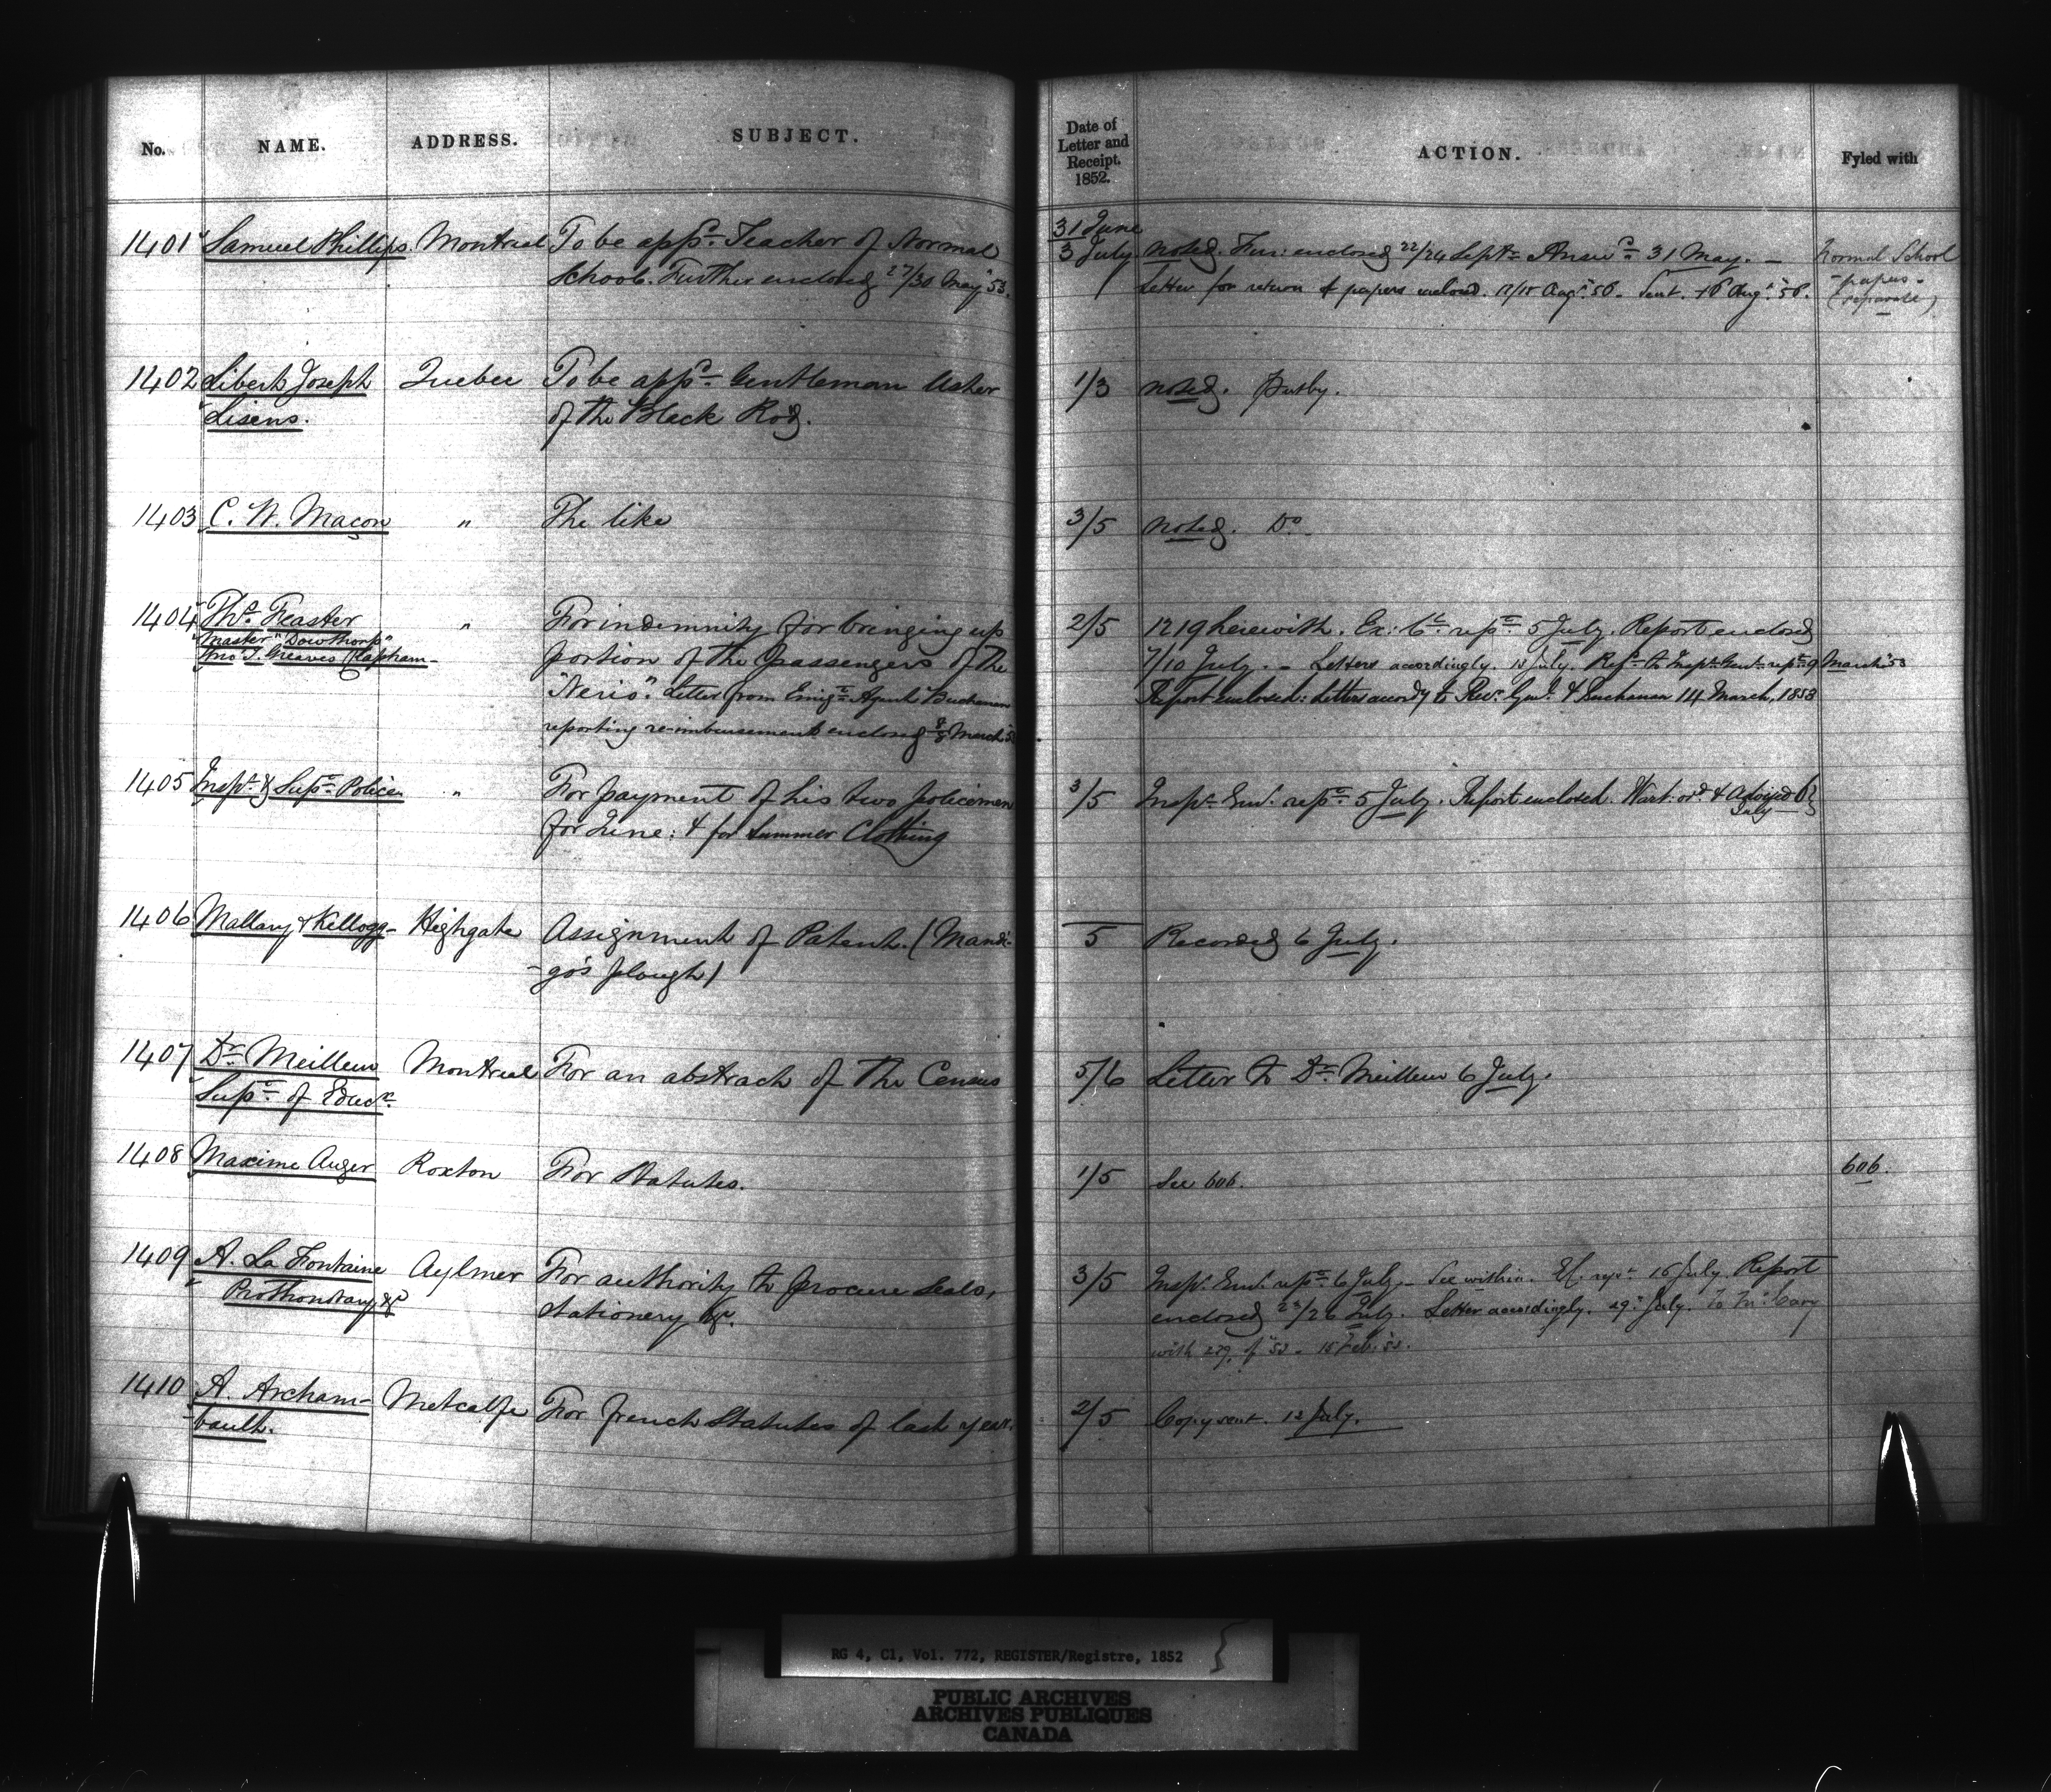 No. NAME. ADDRESS. SUBJECT. Date of Letter and Receipt. 1852. ACTION. Fyled with
1401 Samuel Phillips Montreal To be appd. Teacher of Normal 31 June
School. Further enclosed 27/30 May "53. 3 July noted. Fur: enclosed 22/24 Sept. Answd. 31 May. — Normal School
Letter for return of papers enclosed. Augt. "56. Sent. 16 Augt. "56. papers - (separate)
1402 Libert Joseph Quebec To be appd. Gentleman Usher 1/3 noted.
Lisens. of the Black Rod.
1403 C. N. Maçon " The like 3/5 noted. Do.
1404 Thos. Feaster " For indemnity for bringing up 2/5 1219 herewith. Ex: Cl. repd. 5 July. Report enclosed
Master "Dowthorp" portion of the passengers of the 7/10 July. - Letters accordingly. July. Refd. to Inspr. Genl. repd. 9 March "53
Jno. T. Greaves Clapham - "Neris". Letter from Emign. Agent Buchanan Report enclosed: Letters accordy to Recr. Genl. & Buchanan 14 March, 1853
reporting re-imbursement enclosed 8/8 March
1405 Inspr. & Supt. Police " For payment of his two policemen 3/5 Inspr. Genl. repd. 5 July. Report enclosed. Wart. ord. & advised 6
for June: & for summer Clothing July
1406 Mallary & Kellogg - Highgate Assignment of Patent. (Mandi- 5 Recorded 6 July.
-go's plough)
1407 Dr. Meilleur Montreal For an abstract of the Census 5/6 Letter to Dr. Meilleur 6 July.
Supt. of Educn.
1408 Maxime Auger Roxton For Statutes. 1/5 See 606. 606.
1409 A. La Fontaine Aylmer For authority to procure Seals, 3/5 Inspr. Genl. repd. 6 July - See within. repd. 16 July. Report
Prothonotary &c stationery &c. enclosed 23/26 July. Letter accordingly. 29. July. To Mr. Cary
with 279 of "53 - 15 Feb. "53.
1410 A. Archam- Metcalfe For french Statutes of last year. 2/5 Copy sent. 12 July.
-bault.
RG 4, C1, Vol. 772, REGISTER/Registre, 1852
PUBLIC ARCHIVES
ARCHIVES PUBLIQUES
CANADA